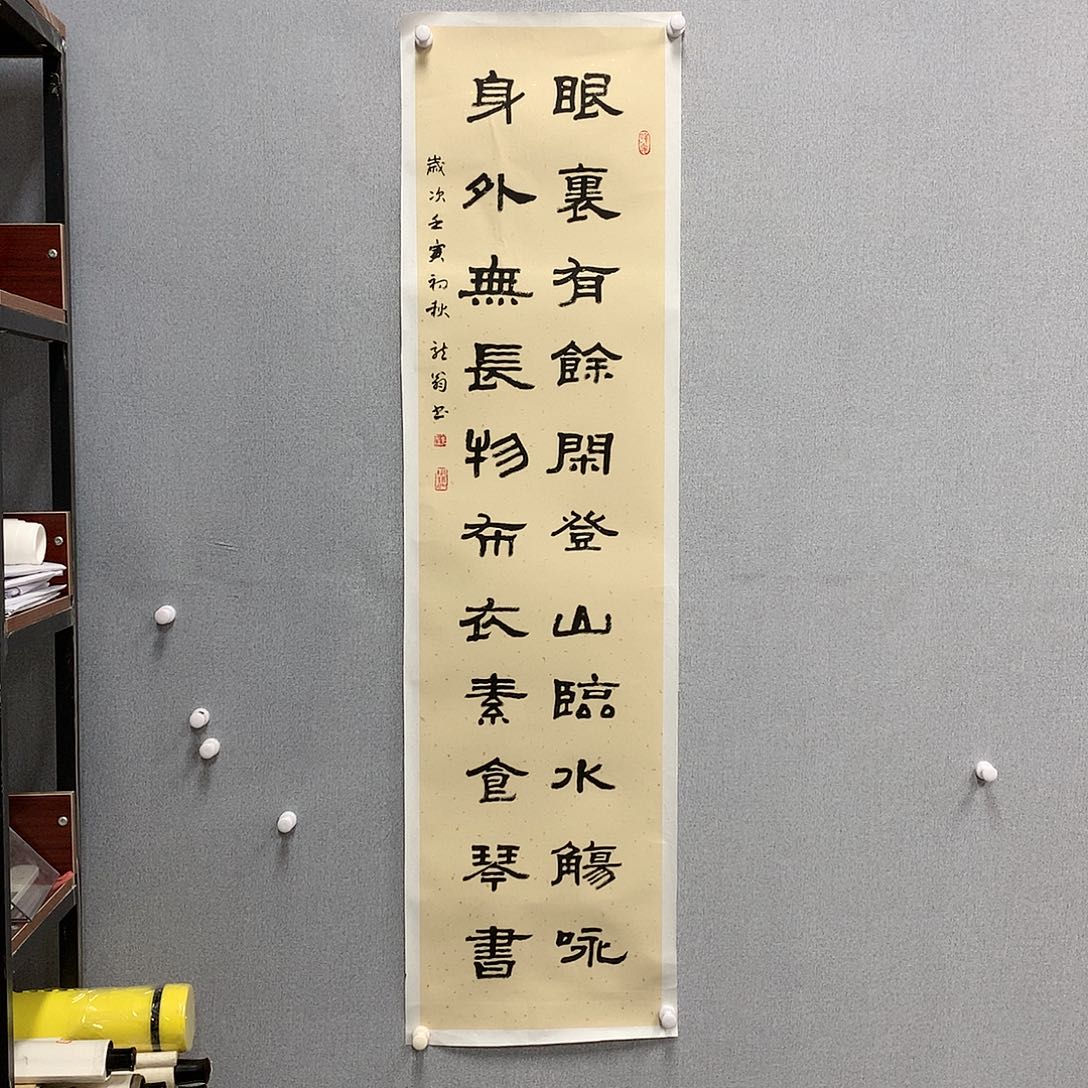 眼裏有餘閑登山臨水觴咏
身外無長物布衣素食琴書
歲次壬寅初秋 龍翁书